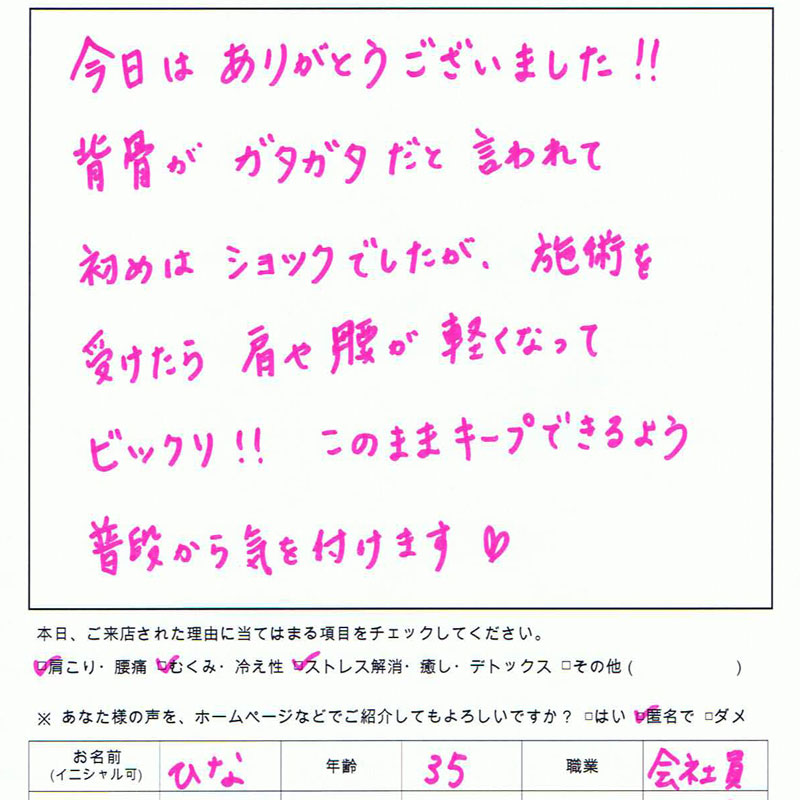 今日は ありがとうございました!!
背骨が ガタガタだと 言われて
初めは ショックでしたが、施術を
受けたら 肩や腰が 軽くなって
ビックリ!! このままキープできるよう
普段から気を付けます♡
本日、ご来店された理由に当てはまる項目をチェックしてください。
☑肩こり・腰痛 ☑むくみ・冷え性 ☑ストレス解消・癒し・デトックス □その他( )
※ あなた様の声を、ホームページなどでご紹介してもよろしいですか? □はい ☑匿名で □ダメ
お名前 (イニシャル可) ひな 年齢 35 職業 会社員